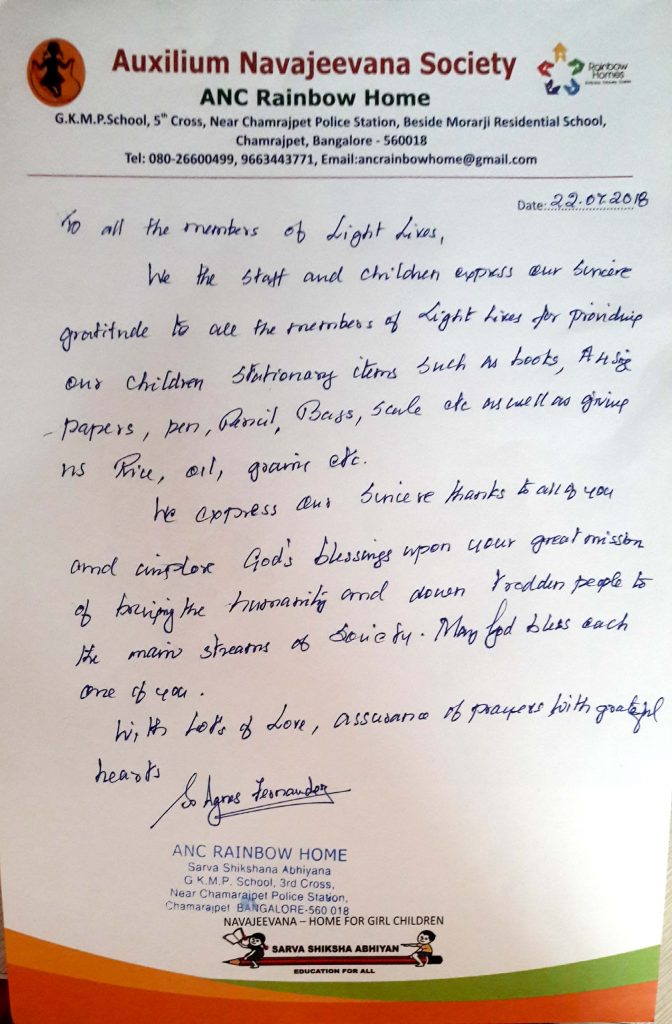 Auxilium Navajeevana Society
Rainbow Homes
ANC Rainbow Home
G.K.M.P.School, 5th Cross, Near Chamrajpet Police Station, Beside Morarji Residential School,
Chamrajpet, Bangalore - 560018
Tel: 080-26600499, 9663443771, Email:ancrainbowhome@gmail.com
Date: 22.07.2018
To all the members of Light Lives,
We the staff and children express our sincere
gratitude to all the members of Light Lives for providing
our children stationary items such as books, A4 size
papers, pen, Pencil, Bags, scale etc as well as giving
us Rice, oil, grains etc.
We express our sincere thanks to all of you
and implore God's blessings upon your great mission
of bringing the humanity and down trodden people to
the main streams of Society. May God bless each
one of you.
With Lots of Love, assurance of prayers with grateful
hearts
Sr Agnes Fernandes
ANC RAINBOW HOME
Sarva Shikshana Abhiyana
G K.M.P. School, 3rd Cross,
Near Chamarajpet Police Station,
Chamarajpet BANGALORE-560 018
NAVAJEEVANA – HOME FOR GIRL CHILDREN
SARVA SHIKSHA ABHIYAN
EDUCATION FOR ALL